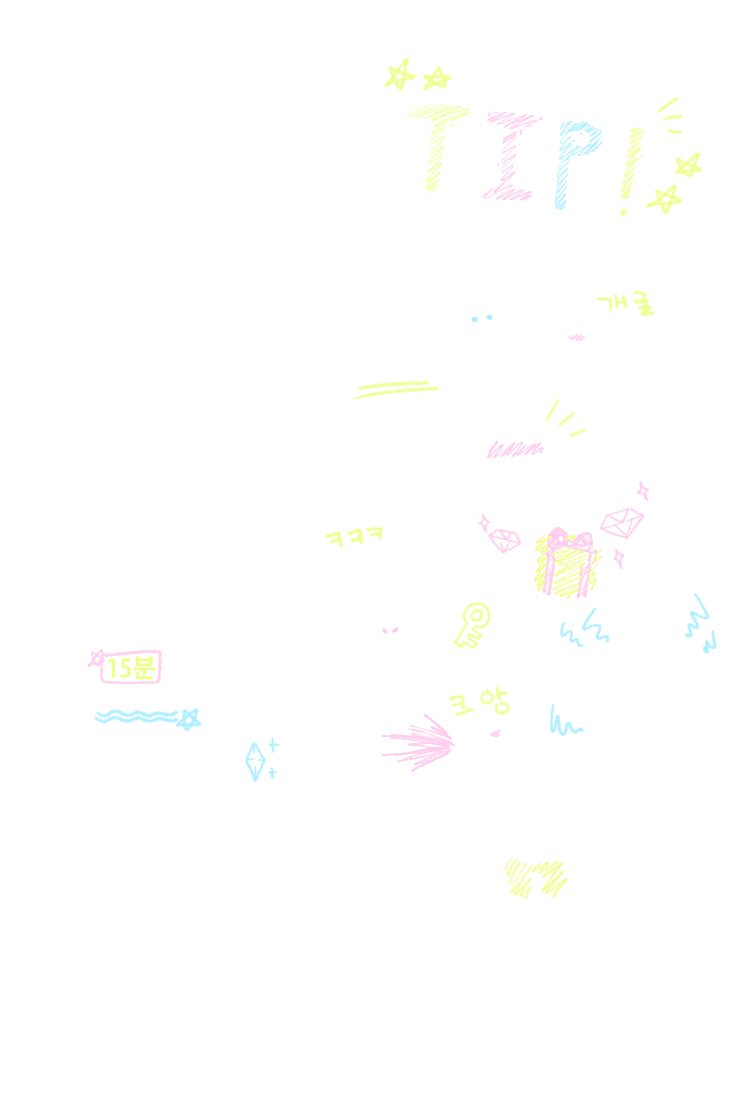 TIP!
개굴
ㅋㅋㅋ
15분
크앙